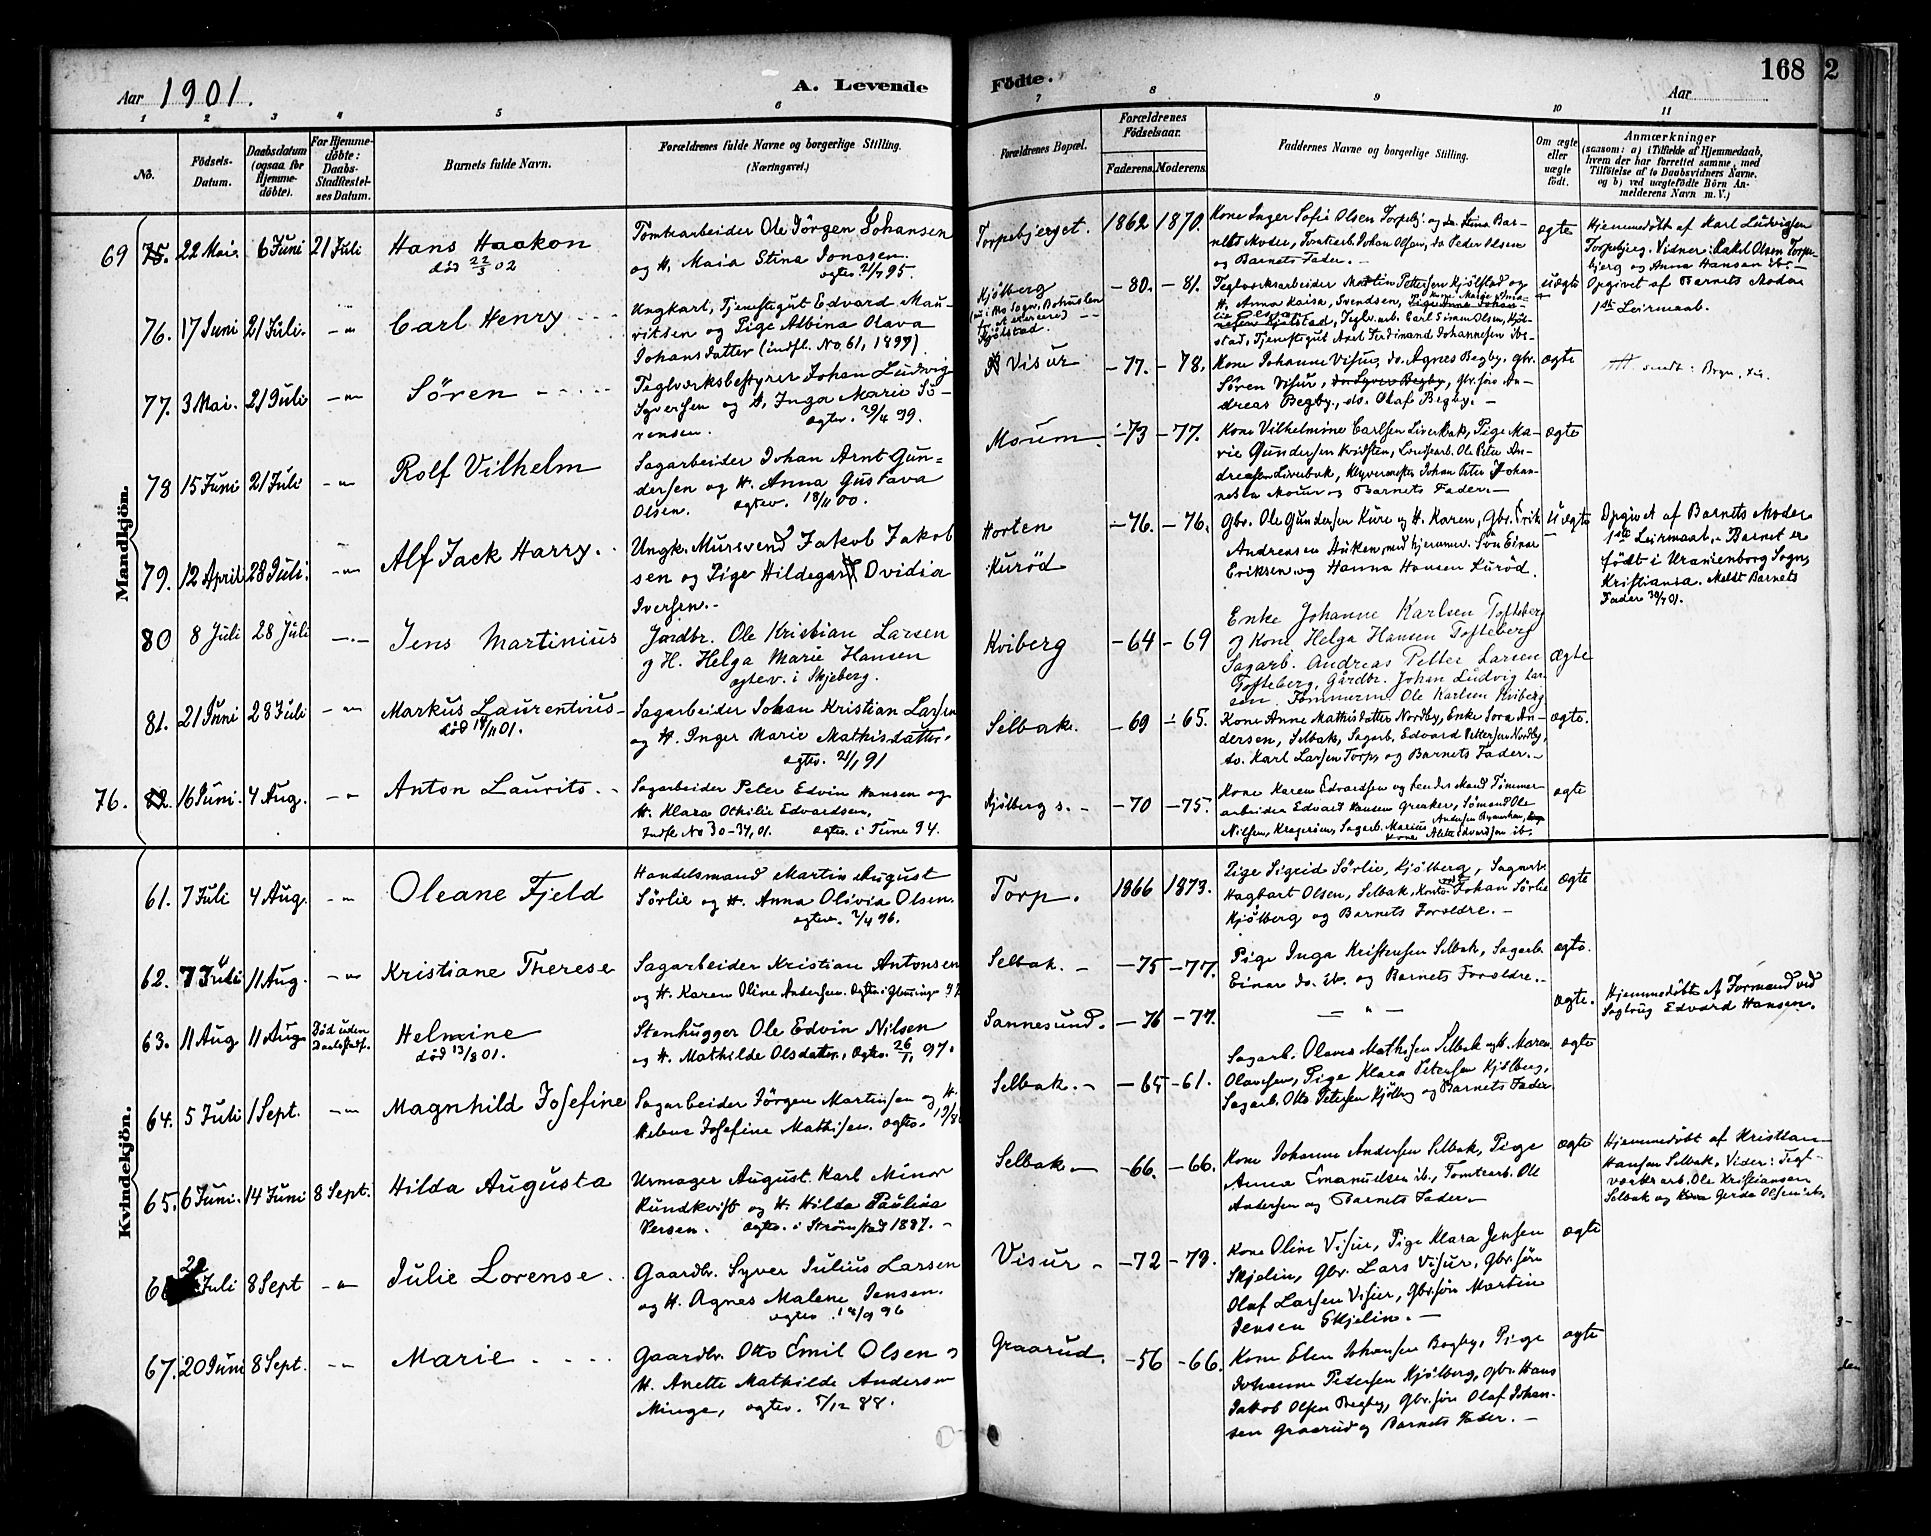 Aar 1901.
A. Levende
Födte.
168
2
Aar
1 2 3 4 5 6 7 8 9 10 11
No.
Födsels-Datum.
Daabsdatum (ogsaa for Hjemme-döbte).
For Hjemme-döbte: Daabs-Stadfæstel-ses Datum.
Barnets fulde Navn.
Forældrenes fulde Navne og borgerlige Stilling. (Næringsvei.)
Forældrenes Bopæl.
Forældrenes Födselsaar.
Faderens. Moderens.
Faddernes Navne og borgerlige Stilling.
Om ægte eller uægte födt.
Anmærkninger
(saasom: a) i Tilfælde af Hjemmedaab, hvem der har forrettet samme, med Tilföielse af to Daabsvidners Navne. og b) ved uægtefödte Börn An-melderens Navn m.V.)
Mandkjön.
69 75. 22 Mai. 6 Juni 21 Juli
Hans Haakon
död 22/3 02
Tomtearbeider Ole Jörgen Johansen
og H. Maia Stina Jonasen.
ægtev. 2/7 95.
Torpebjerget. 1862 1870.
Kone Inger Sofie Olsen Torpebj. og do. Stina Bar-
nets Moder, Tomtearb. Johan Olsen, do Peder Olsen
og Barnets Fader. -
ægte
Hjemmedöbt af Karl Ludvigsen
Torpebjerg. Vidner: Rakel Olsen Torpe-
bjerg og Anna Hansen ib. -
76. 17 Juni 21 Juli. - " -
Carl Henry
Ungkarl, Tjenestegut Edvard Mau-
ritsen og Pige Albina Olava
Johansdatter (indfl. No. 61, 1899).
Kjölberg
Kjölstad.
- 80. - 81.
Teglværksarbeider Martin Petersen Kjölstad og
H. Anna Kaisa Svendsen,
stad, Tjenestegut Axel Ferdinand Johannesen ibe-
uægte
Opgivet af Barnets Moder
1ste Leirmaal.
77. 3 Mai. 21 Juli - " -
Sören
Teglværksbestyrer Johan Ludvig
Syversen og H. Inga Marie Sö-
rensen. ægtev. 29/4 99.
Visur - 77. - 78.
Kone Johanne Visur, do. Agnes Begby, gbr.
Sören Visur, do Syver Begby, gbr.sön An-
dreas Begby, do. Olaf Begby. -
ægte
78 15 Juni 21 Juli - " -
Rolf Vilhelm
Sagarbeider Johan Arnt Gun-
dersen og H. Anna Gustava
Olsen. ægtev. 18/11 00.
Moum. - 73 - 77.
Kone Vilhelmine Carlsen Liverbak, Pige Ma-
rie Gundersen Ole Peter An-
dreasen Liverbak, Johan Peter Johan-
nesen Moum og Barnets Fader. -
ægte
79. 12 April 28 Juli. - " -
Alf Jack Harry.
Ungk. Mursvend Jakob Jakob
sen og Pige Hildegard Ovidia
Iversen. -
Horten
Kuröd
- 76. - 76.
Gbr. Ole Gundersen Kure og H. Karen, Gbr. Erik
Andreasen Huken, med hjemmev. Sön Einar
Eriksen og Hanna Hansen Kuröd.
uægte
Opgivet af Barnets Moder
1ste Leirmaal. - Barnet er
födt i Uranienborg Sogn,
Kristiania. Meldt Barnets
Fader 30/7 01.
80 8 Juli 28 Juli - " -
Jens Martinius
Jordbr. Ole Kristian Larsen
og H. Helga Marie Hansen
ægtev. i Skjeberg.
Kviberg - 64 - 69
Enke Johanne Karlsen Tofteberg
og Kone Helga Hansen Tofteberg
Sagarb. Andreas Petter Larsen
Tofteberg, Gårdbr. Johan Ludvig Lar-
sen Tömmerm. Ole Karlsen Kviberg
ægte
81. 21 Juni 28 Juli - " -
Markus Laurentius
död 14/11 01.
Sagarbeider Johan Kristian Larsen
og H. Inger Marie Mathisdatter.
ægtev. 2/1 91
Selbak. - 69 - 65.
Kone Anne Mathisdatter Nordby, Enke Jora An-
dersen, Selbak, Sagarb. Edvard Pettersen Nordby,
do. Karl Larsen Torp, og Barnets Fader. -
ægte.
76. 82. 16 Juni. 4 Aug. - " -
Anton Laurits. -
Sagarbeider Peter Edvin Hansen og
H. Klara Othilie Edvardsen,
Indfl. No 30 - 34, 01. ægtev. i Tune 94.
Kjölberg s. - - 70 - 75.
Kone Karen Edvardsen og hendes Mand Tömmer
arbeider Edvard Hansen Greaker, Sömand Ole
Nilsen, Krageröen, Sagarb. Marius Andersen
Kone Alette Edvardsen ib.
ægte
Kvindekjön.
61. 7 Juli 4 Aug. - " -
Oleane Fjeld
Handelsmand Martin August
Sörlie og H. Anna Olivia Olsen.
ægtev. 7/4 96.
Torp. 1866 1873.
Pige Sigrid Sörlie, Kjölberg, Sagmst.
Hagbart Olsen, Selbak, Kontorist Johan Sörlie
Kjölberg og Barnets Forældre. -
ægte
62. 7 Juli 11 Aug. - " -
Kristiane Therese
Sagarbeider Kristian Antonsen
og H. Karen Oline Andersen. ægtev. i Glemminge 97
Selbak. - - 75 - 77.
Pige Inga Kristensen Selbak, Sagarb.
Einar do. ib. og Barnets Forældre. -
ægte.
63. 11 Aug 11 Aug. Död uden Daabsstadf.
Helmine
död 13/8 01.
Stenhugger Ole Edvin Nilsen
og H. Mathilde Olsdatter, ægtev. 26/11 97.
Sannesund. - 76 - 77.
- " -
ægte.
Hjemmedöbt af Formand ved
Sagbrug Edvard Hansen.
64. 5 Juli 1 Sept. - " -
Magnhild Josefine
Sagarbeider Jörgen Martinsen og H.
Helene Josefine Mathisen. ægtev. 19/8
Selbak. - - 65 - 61.
Sagarb. Olaves Mathisen Selbak og H. Maren
Olavesen, Pige Klara Petersen Kjölberg,
Sagarb. Otto Petersen Kjölberg og Barnets Fader.
ægte
65. 6 Juni. 14 Juni 8 Sept.
Hilda Augusta
Urmager August Karl Minor
Rundkvist og H. Hilda Paulina
Persen. ægtev. i Strömstad 1887. -
Selbak - - 66. - 66.
Kone Johanne Andersen Selbak, Pige
Anna Emanuelsen ib., Tomtearb. Ole
Andersen og Barnets Fader. -
ægte
Hjemmedöbt af Kristian
Hansen Selbak, Vidner: Tegl-
værksarb. Ole Kristiansen
Selbak og Kone Gerda Olsen ib.
66 28 Juli 8 Sept - " -
Julie Lorense.
Gaardbr. Syver Julius Larsen
og H. Agnes Malene Jensen.
ægtev. 18/9 96
Visur - - 72 - 79.
Kone Oline Visur, Pige Klara Jensen
Skjelin, Gbr. Lars Visur, Gbr.sön
Olaf Larsen Visur, Gbr.sön Martin
Jensen Skjelin. -
ægte
67. 20 Juni 8 Sept. - " -
Marie
Gaardbr. Otto Emil Olsen og
H. Anette Mathilde Andersen
Minge, ægtev. 5/12 88.
Graarud. - 56 - 66.
Kone Elen Johansen Begby, Pige
Johanne Pedersen Kjölberg, gbr. Hans
Jakob Olsen Begby, Gbr.sön Olaf Johan-
sen Graarud og Barnets Fader. -
ægte